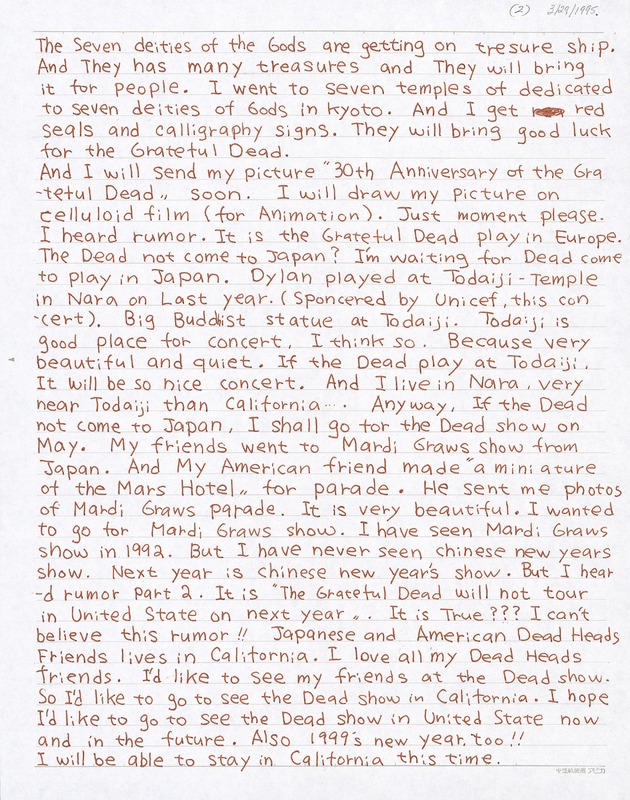 (2) 3/29/1995.
The Seven deities of the Gods are getting on tresure ship.
And They has many treasures and They will bring
it for people. I went to seven temples of dedicated
to seven deities of Gods in Kyoto. And I get red
seals and calligraphy signs. They will bring good luck
for the Grateful Dead.
And I will send my picture "30th Anniversary of the Gra
-teful Dead„ soon. I will draw my picture on
celluloid film (for Animation). Just moment please.
I heard rumor. It is the Grateful Dead play in Europe.
The Dead not come to Japan? I'm waiting for Dead come
to play in Japan. Dylan played at Todaiji-Temple
in Nara on Last year. (Sponcered by Unicef, this con
-cert). Big Buddist statue at Todaiji. Todaiji is
good place for concert, I think so. Because very
beautiful and quiet. If the Dead play at Todaiji,
It will be so nice concert. And I live in Nara, very
near Todaiji than California.... Anyway, If the Dead
not come to Japan, I shall go for the Dead show on
May. My friends went to Mardi Graws show from
Japan. And My American friend made "a miniature
of the Mars Hotel„ for parade. He sent me photos
of Mardi Graws parade. It is very beautiful. I wanted
to go for Mardi Graws show. I have seen Mardi Graws
show in 1992. But I have never seen chinese new years
show. Next year is chinese new year's show. But I hear
-d rumor part 2. It is "The Grateful Dead will not tour
in United State on next year„. It is True??? I can't
believe this rumor!! Japanese and American Dead Heads
Friends lives in California. I love all my Dead Heads
friends. I'd like to see my friends at the Dead show.
So I'd like to go to see the Dead show in California. I hope
I'd like to go to see the Dead show in United State now
and in the future. Also 1999's new year, too!!
I will be able to stay in California this time.